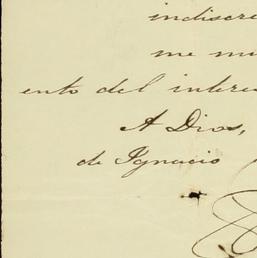 indiscre
me mu
ento del intere
A Dios,
de Ignacio